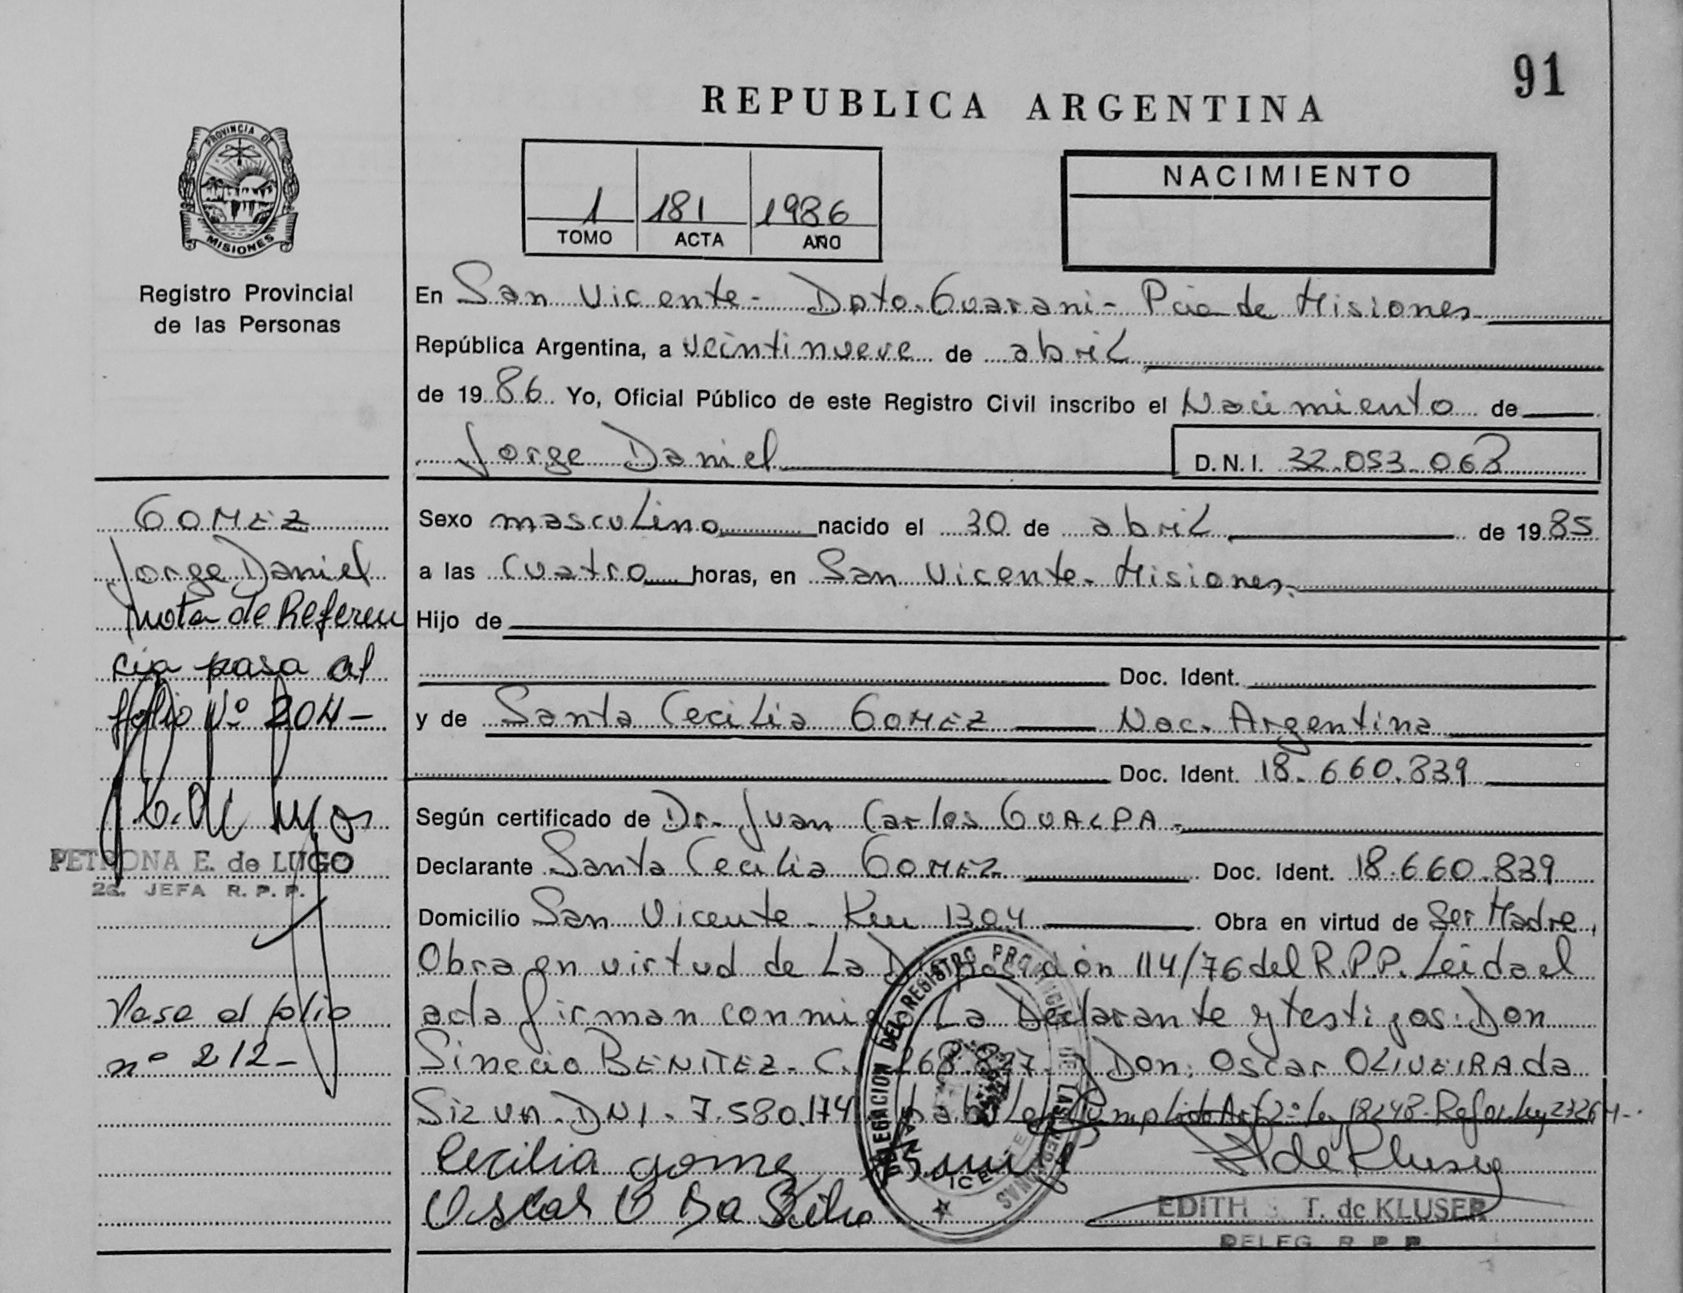 91
REPUBLICA ARGENTINA
PROVINCIA DE
MISIONES
Registro Provincial
de las Personas
1 181 1986
TOMO ACTA AÑO
NACIMIENTO
En San Vicente - Dpto. Guaraní - Pcia de Misiones
República Argentina, a veintinueve de abril
de 1986 Yo, Oficial Público de este Registro Civil inscribo el Nacimiento de
Jorge Daniel D.N.I. 32.053.063
Sexo masculino nacido el 30 de abril de 1985
a las cuatro horas, en San Vicente - Misiones
Hijo de
Doc. Ident.
y de Santa Cecilia GOMEZ Nac. Argentina
Doc. Ident. 18.660.839
Según certificado de Dr. Juan Carlos GUALPA -
Declarante Santa Cecilia GOMEZ Doc. Ident. 18.660.839
Domicilio San Vicente - Km 1304 Obra en virtud de Ser Madre,
Obra en virtud de La Disposición 114/76 del R.P.P. Leida el
acta firman conmigo La Declarante y testigos: Don
Sinecio BENITEZ - C. 268.827 y Don: Oscar OLIVEIRA da
Silva. DNI. 7.580.174 Cumplido Art 2º Ley 18248. Ref. Ley 23264 -
Cecilia Gomez
Oscar O Da Silva
EDITH T. de KLUSER
DELEG R P P
DELEGACION DEL REGISTRO PROVINCIAL DE LAS PERSONAS
SAN VICENTE
GOMEZ
Jorge Daniel
nota de Referen
cia pasa al
folio Nº 204 -
PETRONA E. de LUGO
2a. JEFA R. P. P.
Pasa al folio
nº 212 -